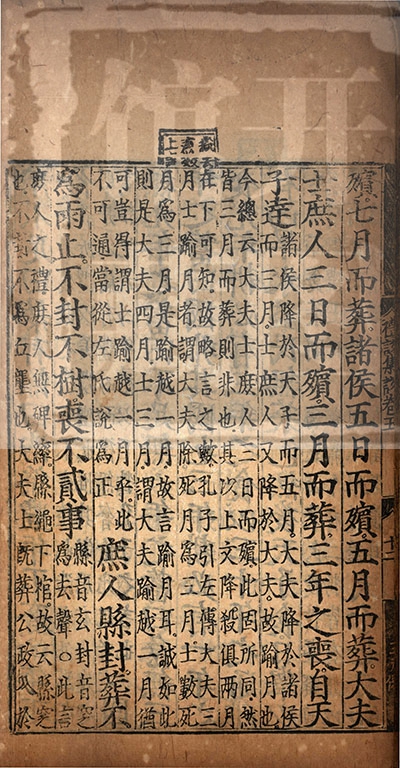 殯。七月而葬。諸侯五日而殯。五月而葬。大夫
士庶人三日而殯。三月而葬。三年之喪。自天
子達
諸侯降於天子而五月。大夫降於諸侯
而三月。士庶人又降於大夫。故踰月也
今總云大夫士庶人三日而殯此固所同然
皆三月而葬則非也其以上文降殺俱兩月
在下可知故略言之歟孔子引左傳大夫三
月士踰月者謂大夫除死月爲三月士數死
月爲三月是踰越一月故言踰月耳誠如此
則是大夫四月士三月謂大夫踰越一月猶
可豈得謂士踰越一月乎。此
不可通當從左氏說爲正
庶人縣封葬不
爲雨止。不封不樹。喪不貳事
縣音玄封音窆
爲去聲○此言
庶人之禮庶人無碑繂縣繩下棺故云縣窆
也不封不爲丘壟也大夫士旣葬公政入於